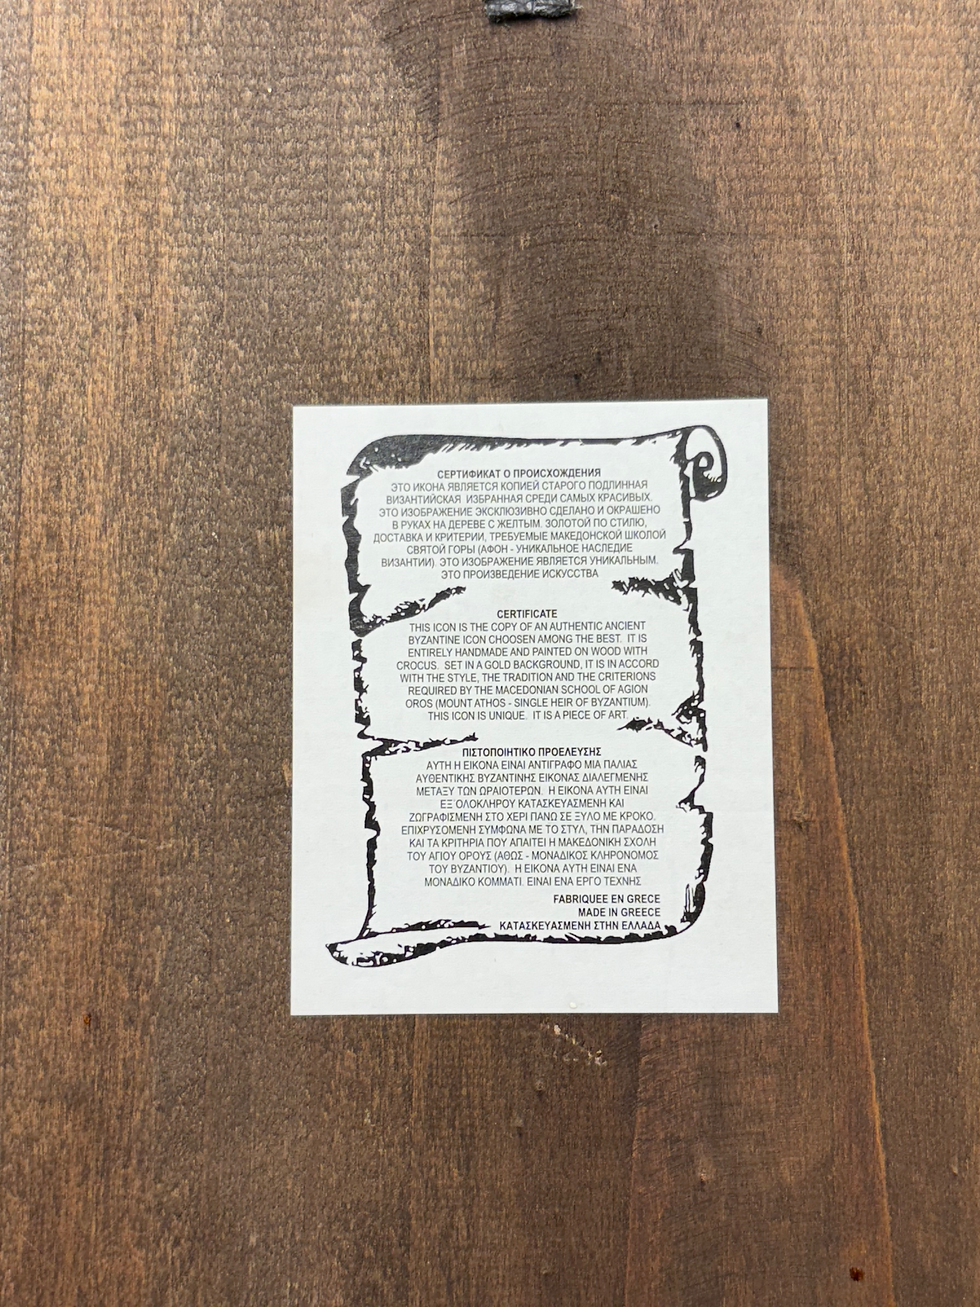 СЕРТИФИКАТ О ПРОИСХОЖДЕНИЯ
ЭТО ИКОНА ЯВЛЯЕТСЯ КОПИЕЙ СТАРОГО ПОДЛИННАЯ
ВИЗАНТИЙСКАЯ ИЗБРАННАЯ СРЕДИ САМЫХ КРАСИВЫХ.
ЭТО ИЗОБРАЖЕНИЕ ЭКСКЛЮЗИВНО СДЕЛАНО И ОКРАШЕНО
В РУКАХ НА ДЕРЕВЕ С ЖЕЛТЫМ. ЗОЛОТОЙ ПО СТИЛЮ,
ДОСТАВКА И КРИТЕРИИ, ТРЕБУЕМЫЕ МАКЕДОНСКОЙ ШКОЛОЙ
СВЯТОЙ ГОРЫ (АФОН - УНИКАЛЬНОЕ НАСЛЕДИЕ
ВИЗАНТИИ). ЭТО ИЗОБРАЖЕНИЕ ЯВЛЯЕТСЯ УНИКАЛЬНЫМ.
ЭТО ПРОИЗВЕДЕНИЕ ИСКУССТВА
CERTIFICATE
THIS ICON IS THE COPY OF AN AUTHENTIC ANCIENT
BYZANTINE ICON CHOOSEN AMONG THE BEST. IT IS
ENTIRELY HANDMADE AND PAINTED ON WOOD WITH
CROCUS. SET IN A GOLD BACKGROUND, IT IS IN ACCORD
WITH THE STYLE, THE TRADITION AND THE CRITERIONS
REQUIRED BY THE MACEDONIAN SCHOOL OF AGION
OROS (MOUNT ATHOS - SINGLE HEIR OF BYZANTIUM).
THIS ICON IS UNIQUE. IT IS A PIECE OF ART.
ΠΙΣΤΟΠΟΙΗΤΙΚΟ ΠΡΟΕΛΕΥΣΗΣ
ΑΥΤΗ Η ΕΙΚΟΝΑ ΕΙΝΑΙ ΑΝΤΙΓΡΑΦΟ ΜΙΑ ΠΑΛΙΑΣ
ΑΥΘΕΝΤΙΚΗΣ ΒΥΖΑΝΤΙΝΗΣ ΕΙΚΟΝΑΣ ΔΙΑΛΕΓΜΕΝΗΣ
ΜΕΤΑΞΥ ΤΩΝ ΩΡΑΙΟΤΕΡΩΝ. Η ΕΙΚΟΝΑ ΑΥΤΗ ΕΙΝΑΙ
ΕΞ΄ΟΛΟΚΛΗΡΟΥ ΚΑΤΑΣΚΕΥΑΣΜΕΝΗ ΚΑΙ
ΖΩΓΡΑΦΙΣΜΕΝΗ ΣΤΟ ΧΕΡΙ ΠΑΝΩ ΣΕ ΞΥΛΟ ΜΕ ΚΡΟΚΟ.
ΕΠΙΧΡΥΣΟΜΕΝΗ ΣΥΜΦΩΝΑ ΜΕ ΤΟ ΣΤΥΛ, ΤΗΝ ΠΑΡΑΔΟΣΗ
ΚΑΙ ΤΑ ΚΡΙΤΗΡΙΑ ΠΟΥ ΑΠΑΙΤΕΙ Η ΜΑΚΕΔΟΝΙΚΗ ΣΧΟΛΗ
ΤΟΥ ΑΓΙΟΥ ΟΡΟΥΣ (ΑΘΩΣ - ΜΟΝΑΔΙΚΟΣ ΚΛΗΡΟΝΟΜΟΣ
ΤΟΥ ΒΥΖΑΝΤΙΟΥ). Η ΕΙΚΟΝΑ ΑΥΤΗ ΕΙΝΑΙ ΕΝΑ
ΜΟΝΑΔΙΚΟ ΚΟΜΜΑΤΙ. ΕΙΝΑΙ ΕΝΑ ΕΡΓΟ ΤΕΧΝΗΣ
FABRIQUEE EN GRECE
MADE IN GREECE
ΚΑΤΑΣΚΕΥΑΣΜΕΝΗ ΣΤΗΝ ΕΛΛΑΔΑ